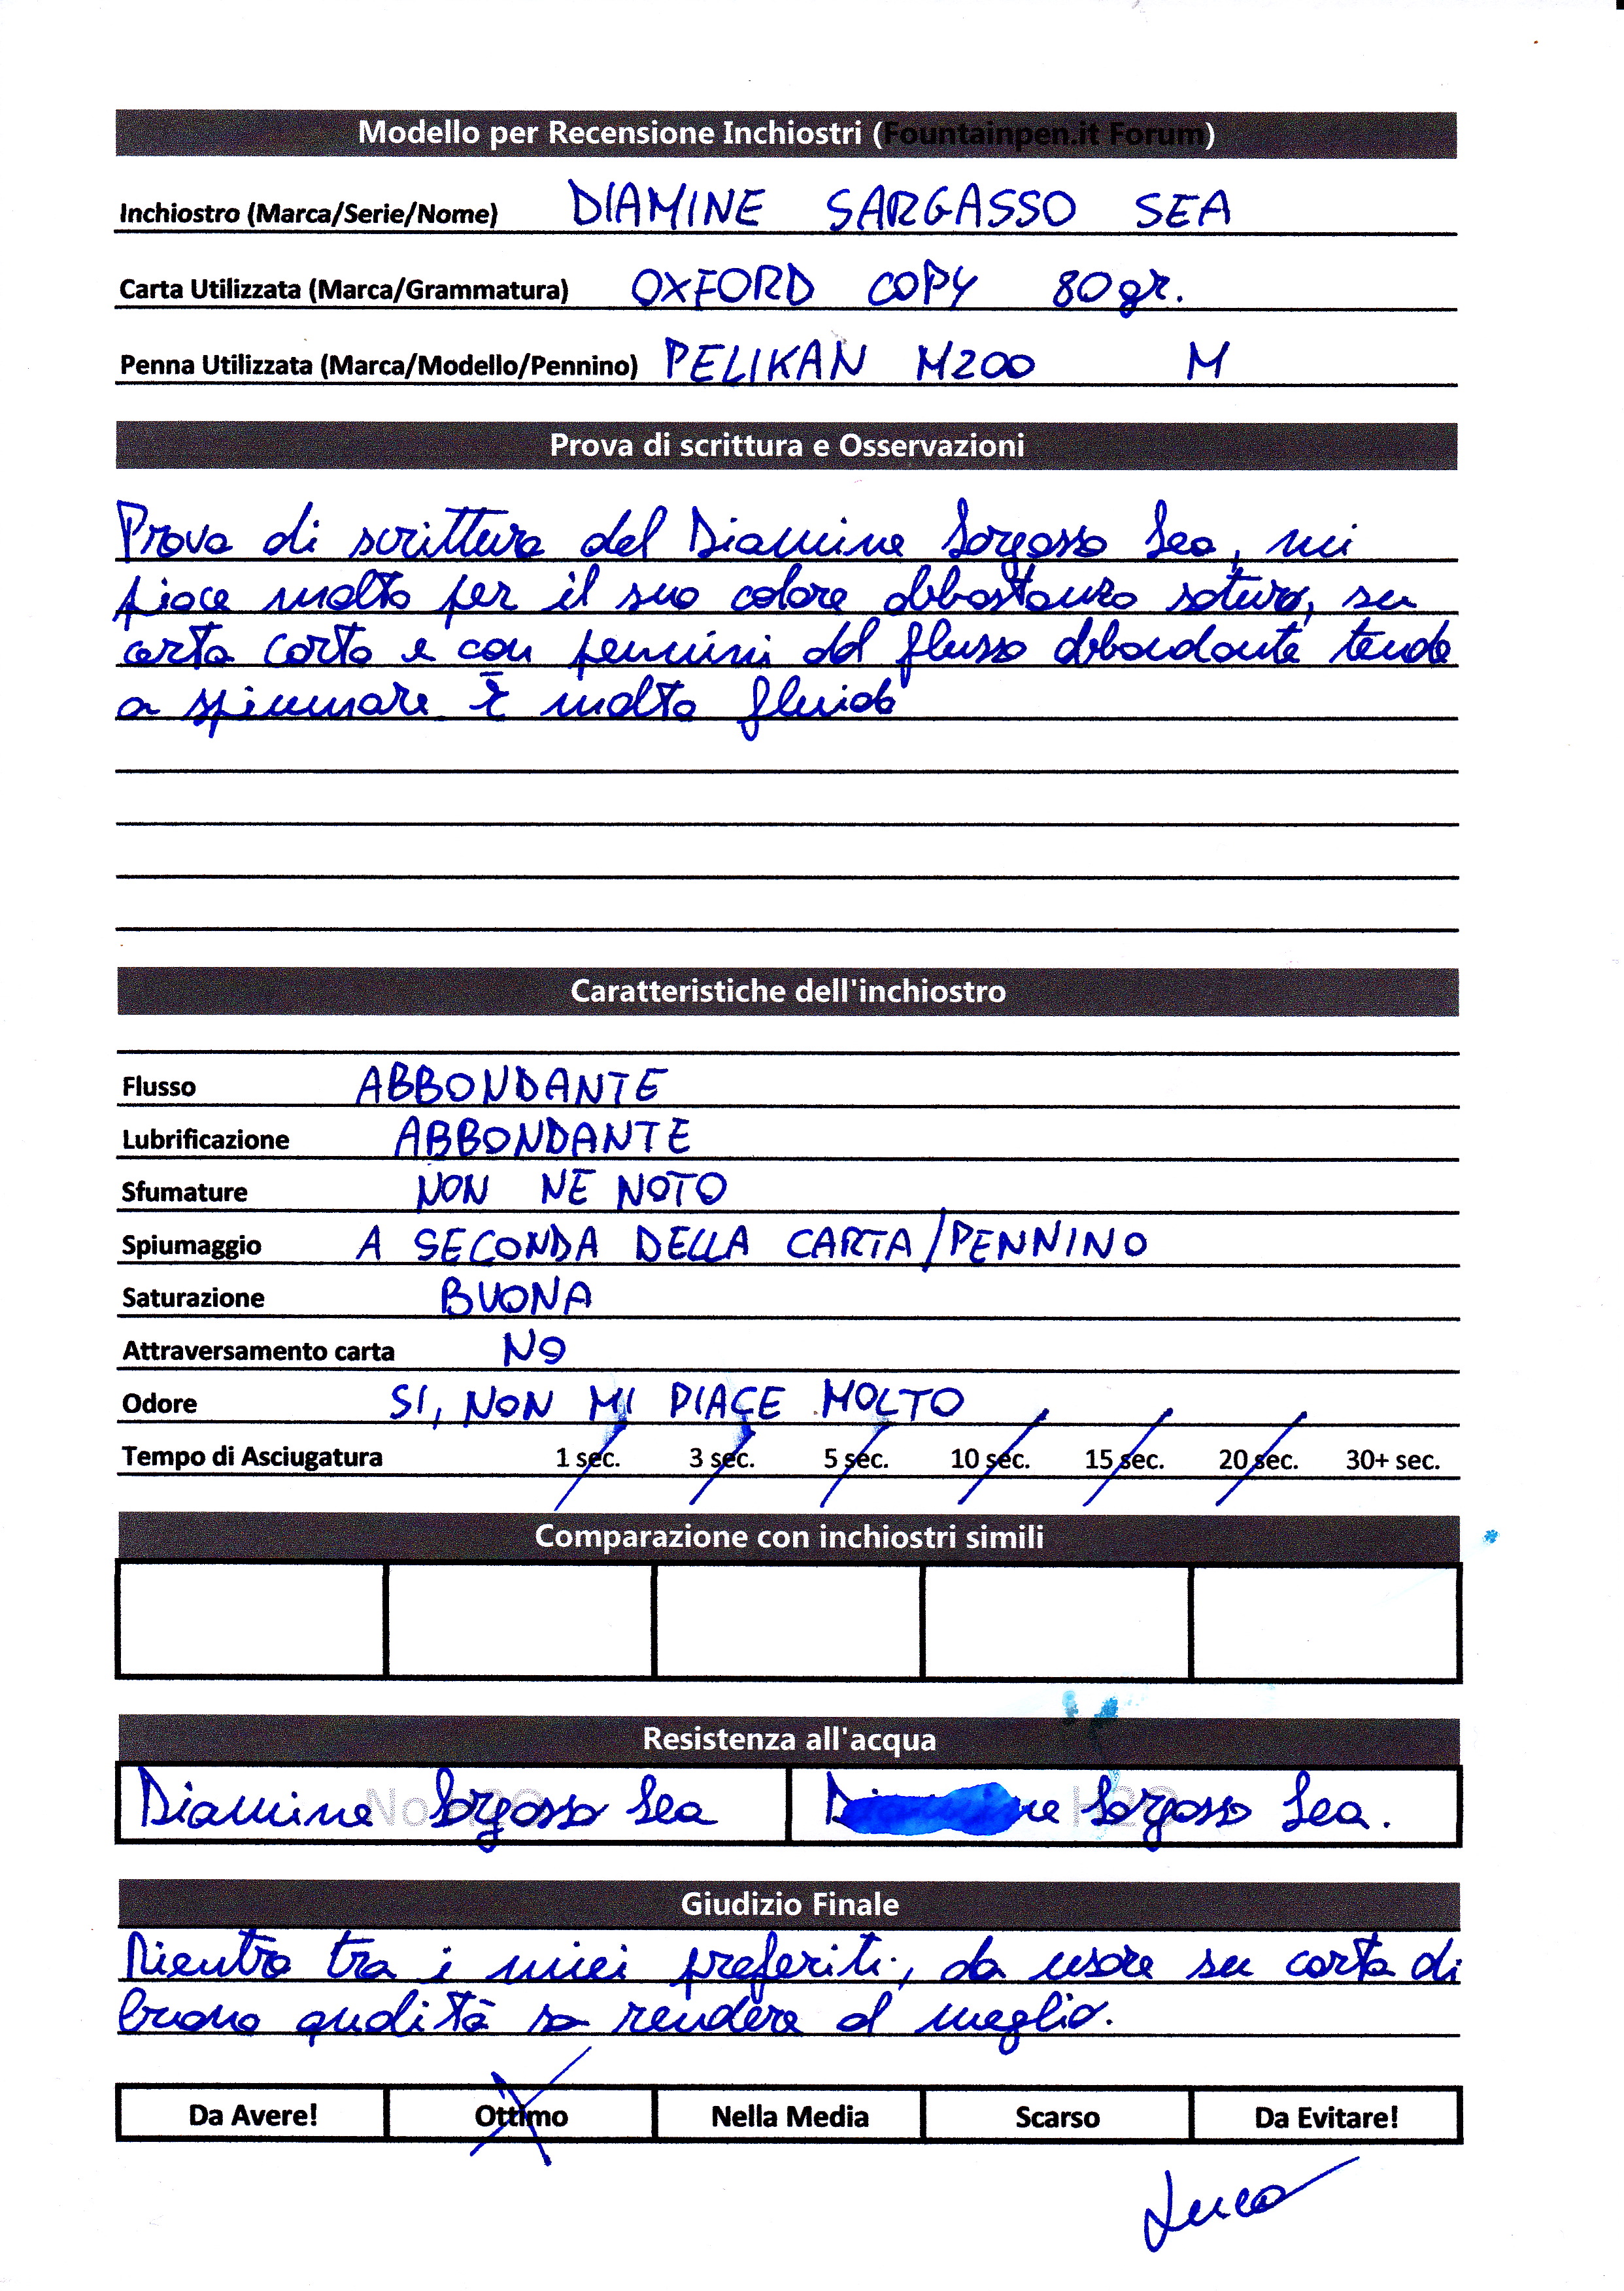 Modello per Recensione Inchiostri (Fountainpen.it Forum)
Inchiostro (Marca/Serie/Nome) DIAMINE SARGASSO SEA
Carta Utilizzata (Marca/Grammatura) OXFORD COPY 80gr.
Penna Utilizzata (Marca/Modello/Pennino) PELIKAN M200 M
Prova di scrittura e Osservazioni
Prova di scrittura del Diamine Sargasso Sea, mi
piace molto per il suo colore abbastanza saturo, su
certa carta e con pennini dal flusso abbondante tende
a spiumare. È molto fluido
Caratteristiche dell'inchiostro
Flusso ABBONDANTE
Lubrificazione ABBONDANTE
Sfumature NON NE NOTO
Spiumaggio A SECONDA DELLA CARTA/PENNINO
Saturazione BUONA
Attraversamento carta NO
Odore SI, NON MI PIACE MOLTO
Tempo di Asciugatura 1 sec. 3 sec. 5 sec. 10 sec. 15 sec. 20 sec. 30+ sec.
Comparazione con inchiostri simili
Resistenza all'acqua
Diamine Sargasso Sea Diamine Sargasso Sea.
No H2O H2O
Giudizio Finale
Rientra tra i miei preferiti, da usare su carta di
buona qualità sa rendere al meglio.
Da Avere! Ottimo Nella Media Scarso Da Evitare!
Luca